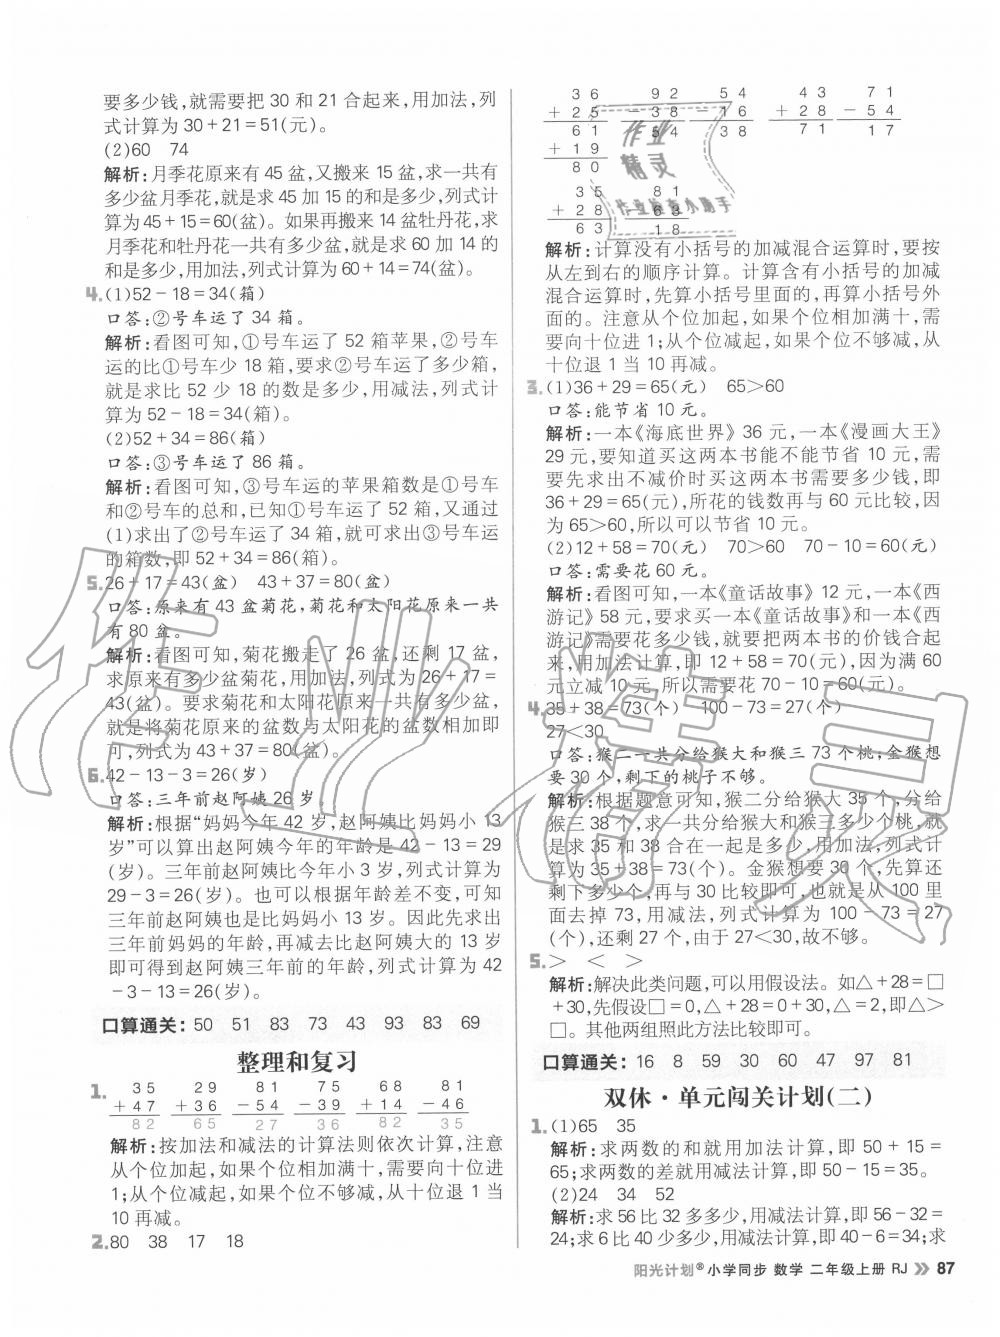 要多少钱,就需要把 30 和 21 合起来,用加法,列
式计算为 30+21=51(元)。
(2)60 74
解析:月季花原来有 45 盆,又搬来 15 盆,求一共有
多少盆月季花,就是求 45 加 15 的和是多少,列式计
算为 45+15=60(盆)。如果再搬来 14 盆牡丹花,求
月季花和牡丹花一共有多少盆,就是求 60 加 14 的
和是多少,用加法,列式计算为 60+14=74(盆)。
4.(1)52-18=34(箱)
口答:②号车运了 34 箱。
解析:看图可知,①号车运了 52 箱苹果,②号车
运的比①号车少 18 箱,要求②号车运了多少箱,
就是求比 52 少 18 的数是多少,用减法,列式计
算为 52-18=34(箱)。
(2)52+34=86(箱)
口答:③号车运了 86 箱。
解析:看图可知,③号车运的苹果箱数是①号车
和②号车的总和,已知①号车运了 52 箱,又通过
(1)求出了②号车运了 34 箱,就可求出③号车运
的箱数,即 52+34=86(箱)。
5.26+17=43(盆) 43+37=80(盆)
口答:原来有 43 盆菊花,菊花和太阳花原来一共
有 80 盆。
解析:看图可知,菊花搬走了 26 盆,还剩 17 盆,
求原来有多少盆菊花,用加法,列式为 26+17=
43(盆)。要求菊花和太阳花原来一共有多少盆,
就是将菊花原来的盆数与太阳花的盆数相加即
可,列式为 43+37=80(盆)。
6.42-13-3=26(岁)
口答:三年前赵阿姨 26 岁
解析:根据“妈妈今年 42 岁,赵阿姨比妈妈小 13
岁”可以算出赵阿姨今年的年龄是 42-13=29
(岁)。三年前赵阿姨比今年小 3 岁,列式计算为
29-3=26(岁)。也可以根据年龄差不变,可知
三年前赵阿姨也是比妈妈小 13 岁。因此先求出
三年前妈妈的年龄,再减去比赵阿姨大的 13 岁
即可得到赵阿姨三年前的年龄,列式计算为 42
-3-13=26(岁)。
口算通关: 50 51 83 73 43 93 83 69
整理和复习
1. 35 29 81 75 68 81
+47 +36 -54 -39 +14 -46
82 65 27 36 82 35
解析:按加法和减法的计算法则依次计算,注意
从个位加起,如果个位相加满十,需要向十位进
1;从个位减起,如果个位不够减,从十位退 1 当
10 再减。
2.80 38 17 18
36 92 54 43 71
+25 -38 -16 +28 -54
61 54 38 71 17
+19
80
35 81
+28 -63
63 18
解析:计算没有小括号的加减混合运算时,要按
从左到右的顺序计算。计算含有小括号的加减
混合运算时,先算小括号里面的,再算小括号外
面的。注意从个位加起,如果个位相加满十,需
要向十位进 1;从个位减起,如果个位不够减,从
十位退 1 当 10 再减。
3.(1)36+29=65(元) 65>60
口答:能节省 10 元。
解析:一本《海底世界》36 元,一本《漫画大王》
29 元,要知道买这两本书能不能节省 10 元,需
要先求出不减价时买这两本书需要多少钱,即
36+29=65(元),所花的钱数再与 60 元比较,因
为 65>60,所以可以节省 10 元。
(2)12+58=70(元) 70>60 70-10=60(元)
口答:需要花 60 元。
解析:看图可知,一本《童话故事》12 元,一本《西
游记》58 元,要求买一本《童话故事》和一本《西
游记》需要花多少钱,就要把两本书的价钱合起
来,用加法计算,即 12+58=70(元),因为满 60
元立减 10 元,所以需要花 70-10=60(元)。
4.35+38=73(个) 100-73=27(个)
27<30
口答:猴二一共分给猴大和猴三 73 个桃;金猴想
要 30 个,剩下的桃子不够。
解析:根据题意可知,猴二分给猴大 35 个,分给
猴三 38 个,求一共分给猴大和猴三多少个桃,就
是求 35 和 38 合在一起是多少,用加法,列式为
35+38=73(个)。金猴想要 30 个,先算出还
剩下多少个,再与 30 比较即可,也就是从 100 里
面去掉 73,用减法,列式计算为 100-73=27
(个),还剩 27 个,由于 27<30,故不够。
5.> < >
解析:解决此类问题,可以用假设法。如△+28=□
+30,先假设□=0,△+28=0+30,△=2,即△>
□。其他两组照此方法比较即可。
口算通关: 16 8 59 30 60 47 97 81
双休·单元闯关计划(二)
1.(1)65 35
解析:求两数的和就用加法计算,即 50+15=
65;求两数的差就用减法计算,即 50-15=35。
(2)24 34 52
解析:求 56 比 32 多多少,用减法计算,即 56-32=
24;求 6 比 40 少多少,用减法计算,即 40-6=34;求
阳光计划®小学同步 数学 二年级上册 RJ 87
作业精灵
作业
精灵
作业检查小助手